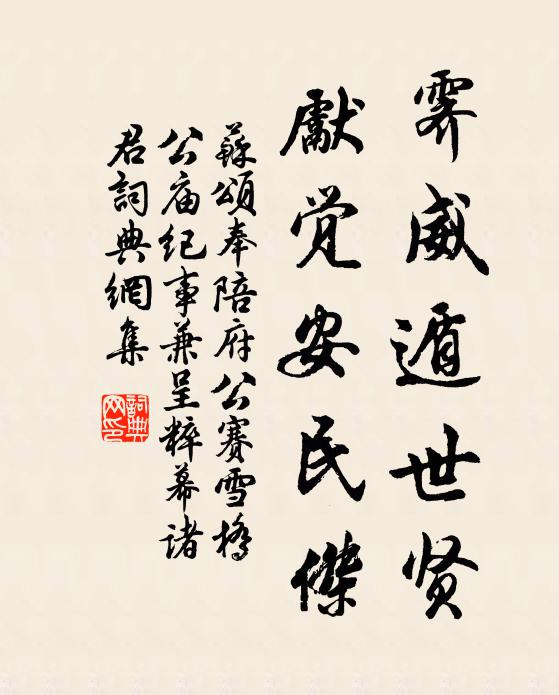 霁威遁世贤
献觉安民杰
蘇頌奉陪府公赛雪橋
公庙纪事兼呈粹幕诸
君詞典網集
詞典网印